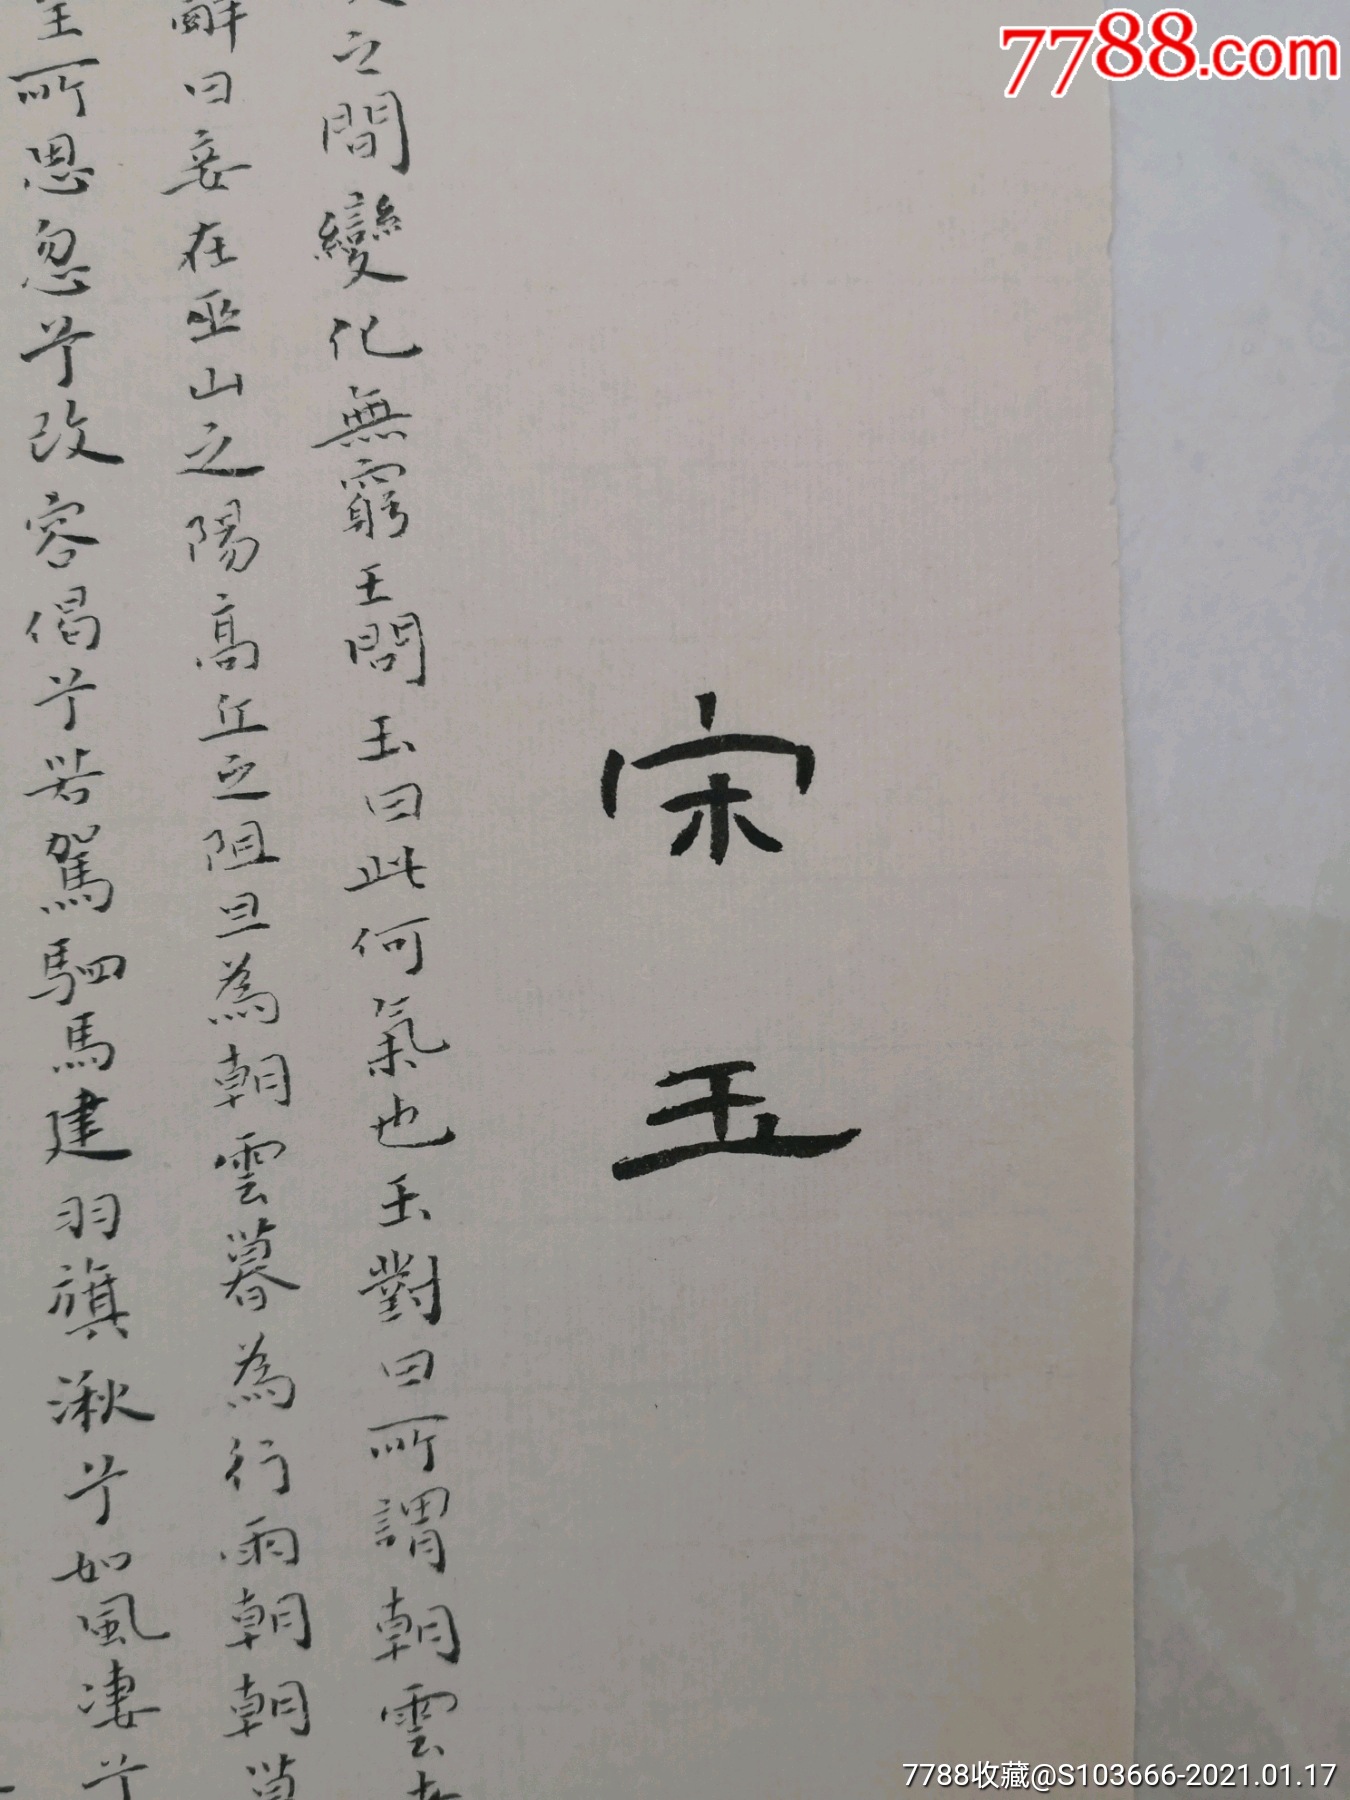 7788.com
宋玉
之間變化無窮王問玉曰此何氣也玉對曰所謂朝雲
辭曰妾在巫山之陽高丘之阻旦為朝雲暮為行雨朝朝
所思忽兮改容偈兮若駕駟馬建羽旗湫兮如風凄兮
7788收藏@S103666-2021.01.17